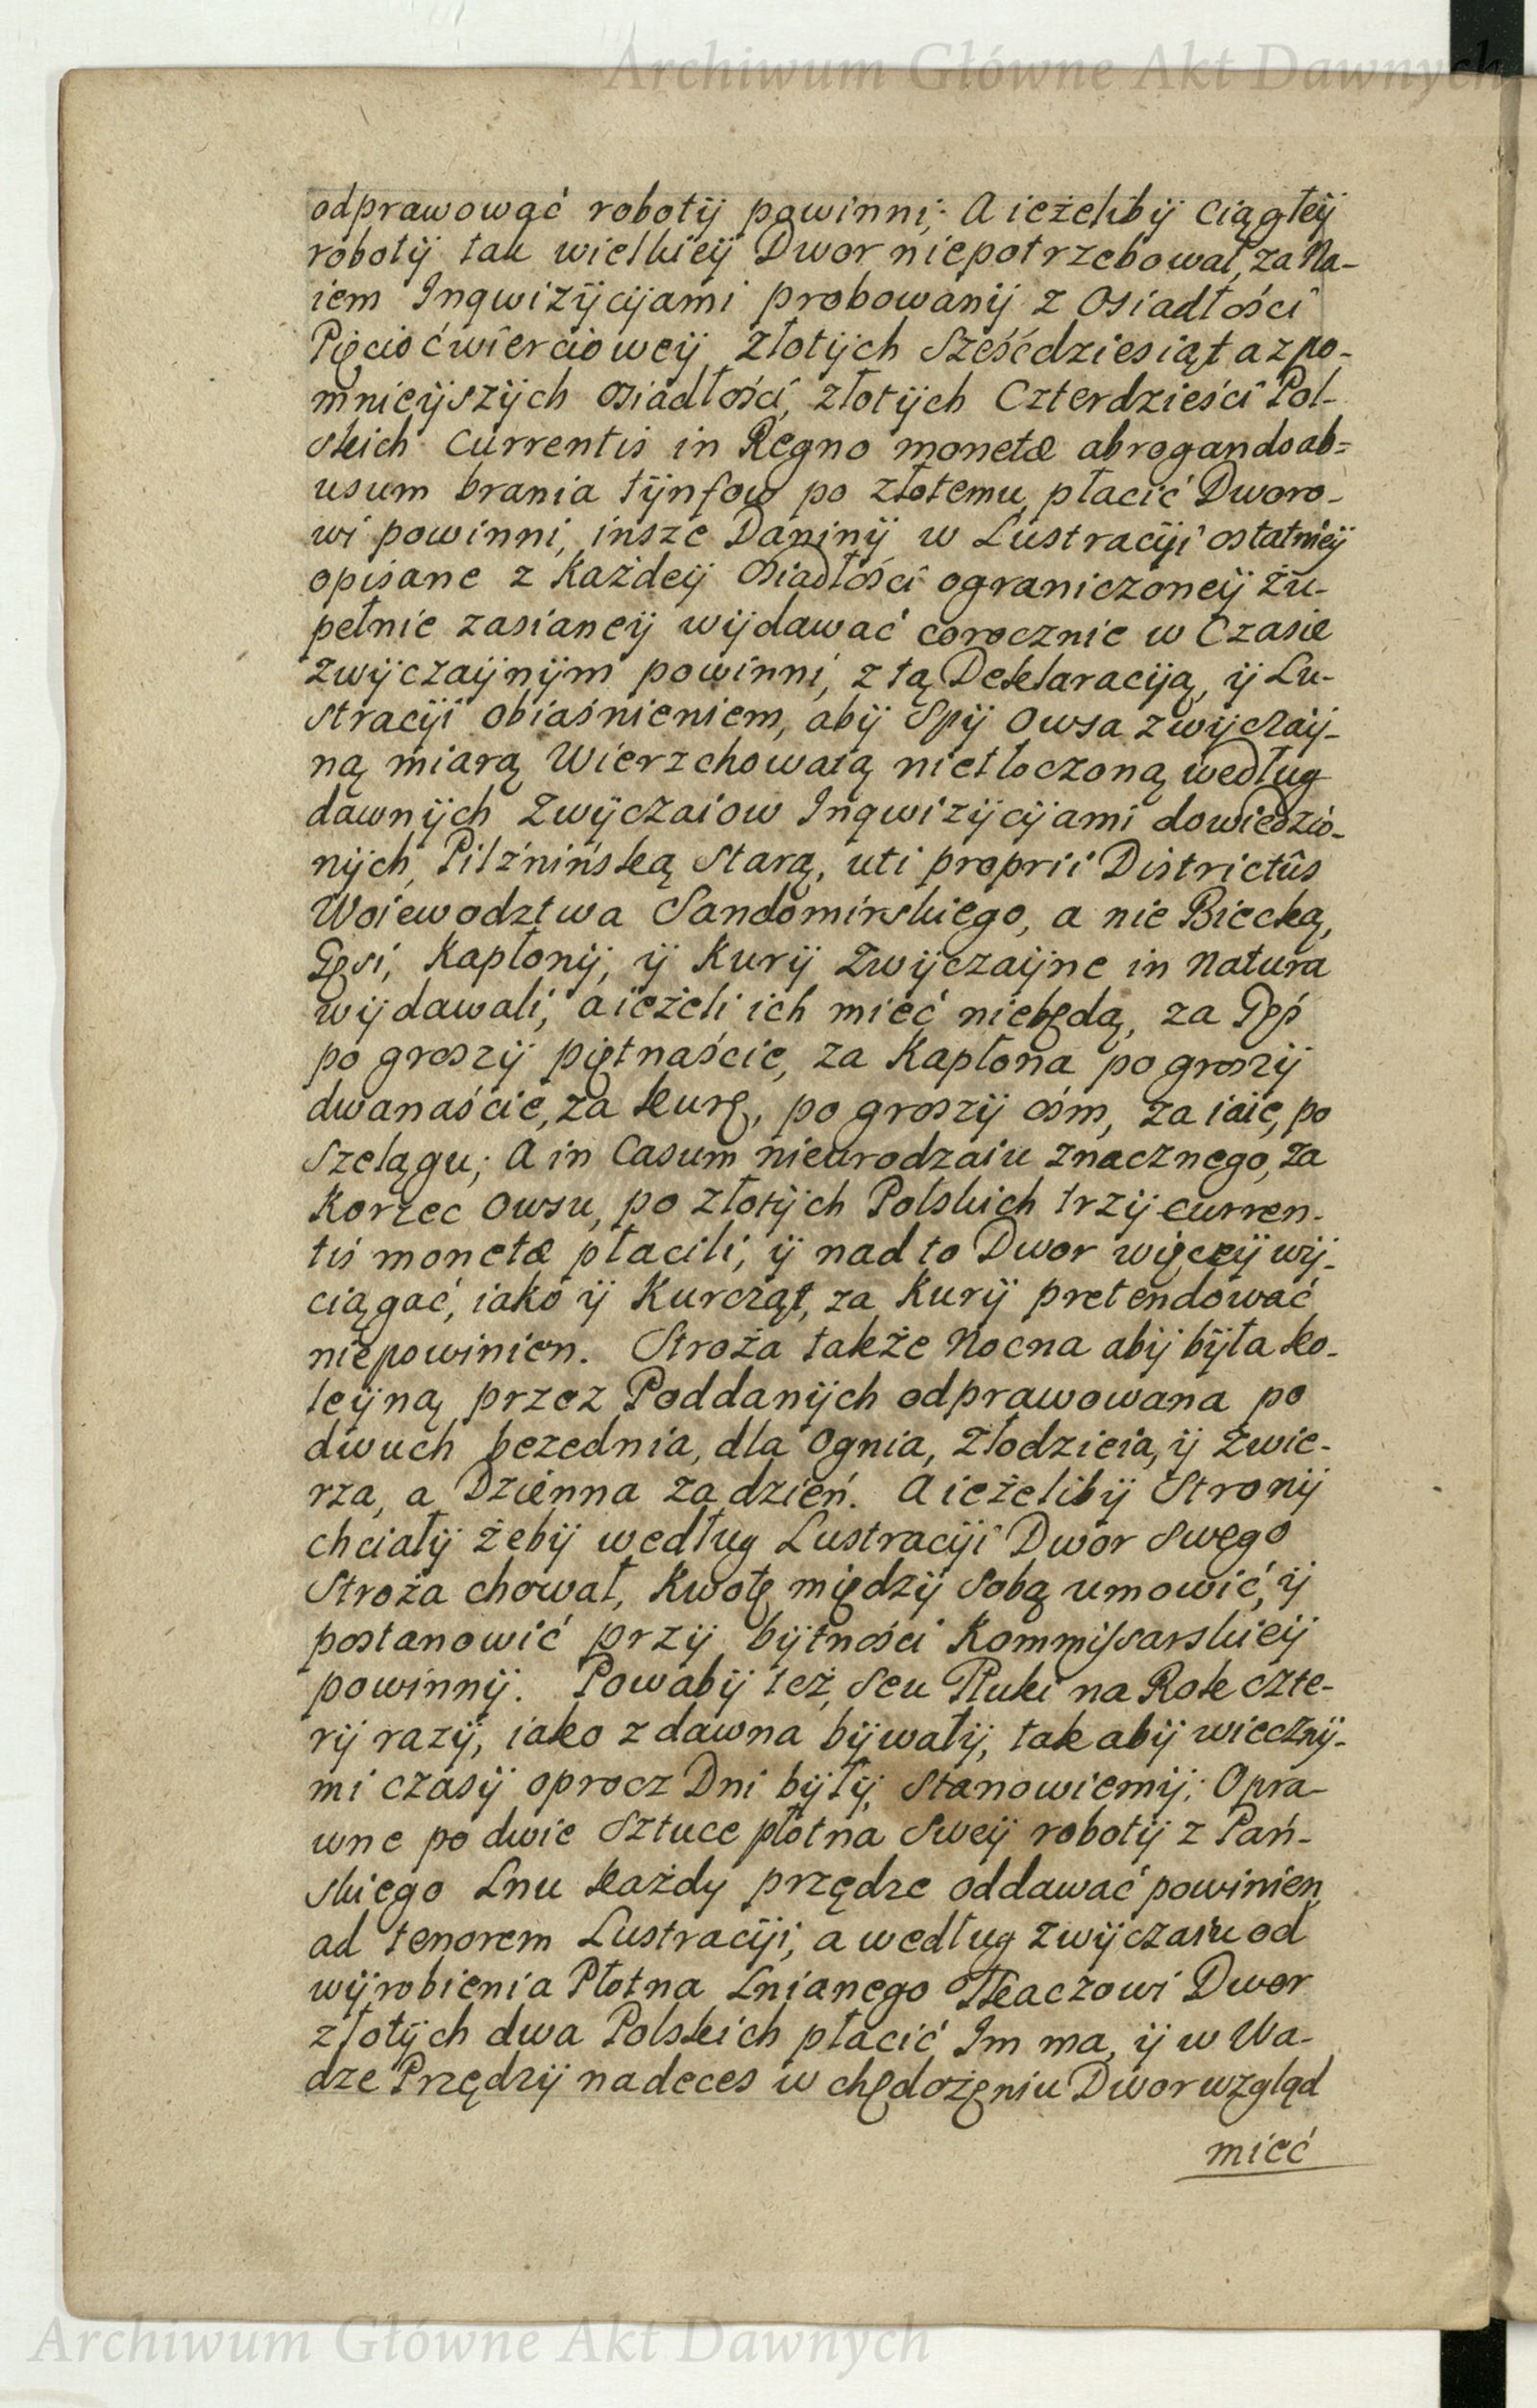 Archiwum Główne Akt Dawnych
odprawować robotÿ powinni; A ieżelibÿ ciągłeÿ
robotÿ tak wielkieÿ Dwor niepotrzebował, za Na-
iem Inqwizÿcÿjami probowanÿ z Osiadłości
Pięcioćwiercioweÿ, złotÿch Sześćdziesiąt a z po-
mnieÿszÿch osiadłości, złotÿch Czterdzieści Pol-
skich Currentis in Regno monetæ abrogando ab=
usum brania tÿnfow po złotemu płacić Dworo-
wi powinni, insze Daninÿ w Lustracÿi ostatnieÿ
opisane z Każdeÿ Osiadłości ograniczoneÿ żu-
pełnie zasianeÿ wÿdawać corocznie w Czasie
zwÿczaÿnÿm powinni, z tą Deklaracÿją, ÿ Lu-
stracÿi obiaśnieniem, abÿ Spÿ Owsa zwÿczaÿ-
ną miarą Wierzchowatą nietłoczoną według
dawnÿch Zwÿczaiow Inqwizÿcÿjami dowiedzio-
nÿch, Pilźnińską Starą, uti proprii Districtûs
Woiewodztwa Sandomirskiego, a nie Biecką,
Gęsi, Kapłonÿ, ÿ Kurÿ Zwÿczaÿne in Natura
wÿdawali, a ieżeli ich mieć niebędą, za Gęś
po groszÿ piętnaście, za Kapłona po groszÿ
dwanaście, za kurę, po groszÿ ośm, za iaie, po
Szelągu; A in Casum nieurodzaiu znacznego, za
Korzec Owsu, po złotÿch Polskich trzÿ curren-
tis monetæ płacili, ÿ nad to Dwor więceÿ wÿ-
ciągać, iako ÿ Kurcząt, za Kurÿ pretendować
niepowinien. Stroża także Nocna abÿ bÿła ko-
leÿną przez Poddanÿch odprawowana po
dwuch bezednia, dla Ognia, Złodzieia, ÿ Zwie-
rza, a Dzienna za dzień. A ieżelibÿ Stronÿ
chciałÿ żebÿ według Lustracÿi Dwor Swego
Stroża chował, Kwotę międzÿ Sobą umowić, ÿ
postanowić przÿ bÿtności Kommissarskieÿ
powinnÿ. Powabÿ też, Seu Tłuki na Rok czte-
rÿ razÿ, iako z dawna bÿwałÿ, tak abÿ wiecznÿ-
mi czasÿ oprocz Dni bÿłÿ, stanowiemÿ; Opra-
wne po dwie Sztuce płotna Sweÿ robotÿ z Pań-
skiego Lnu każdy przędze oddawać powinien
ad tenorem Lustracÿi, a według zwÿczaiu od
wÿrobienia Płotna Lnianego Tkaczowi Dwor
złotÿch dwa Polskich płacić Im ma, ÿ w Wa-
dze Przędzÿ na deces w chędożeniu Dwor wzgląd
mieć
Archiwum Główne Akt Dawnych